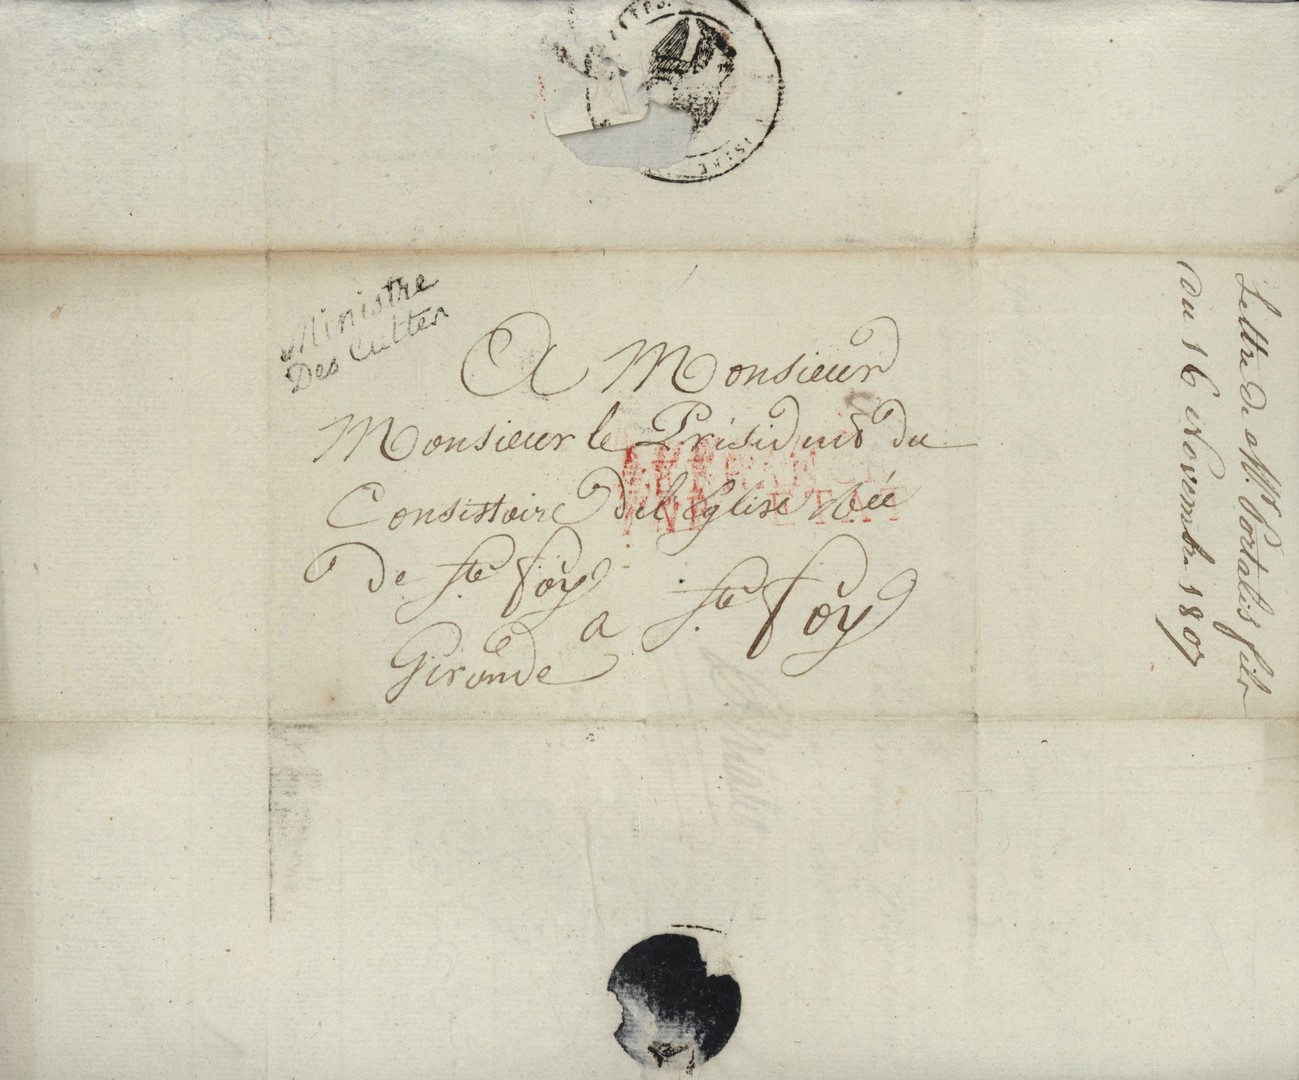 Ministre
Des Cultes
A Monsieur
Monsieur le Président du
Consistoire de l'Eglise Rée
de Ste foy
a Ste foy
Gironde
Lettre de Mr. Portalis fils
du 16 Novembre 1807